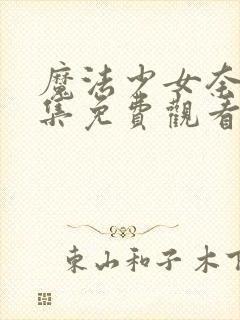 魔法少女奈
集免費觀看
東山和子木下